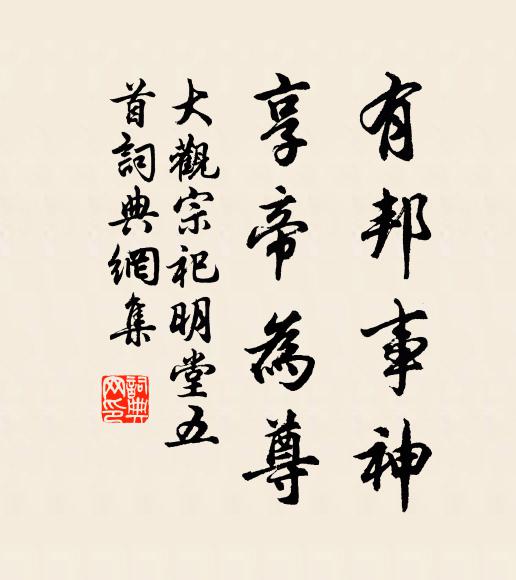 有邦事神
享帝為尊
大觀宗祀明堂五
首詞典網集
詞典
网印